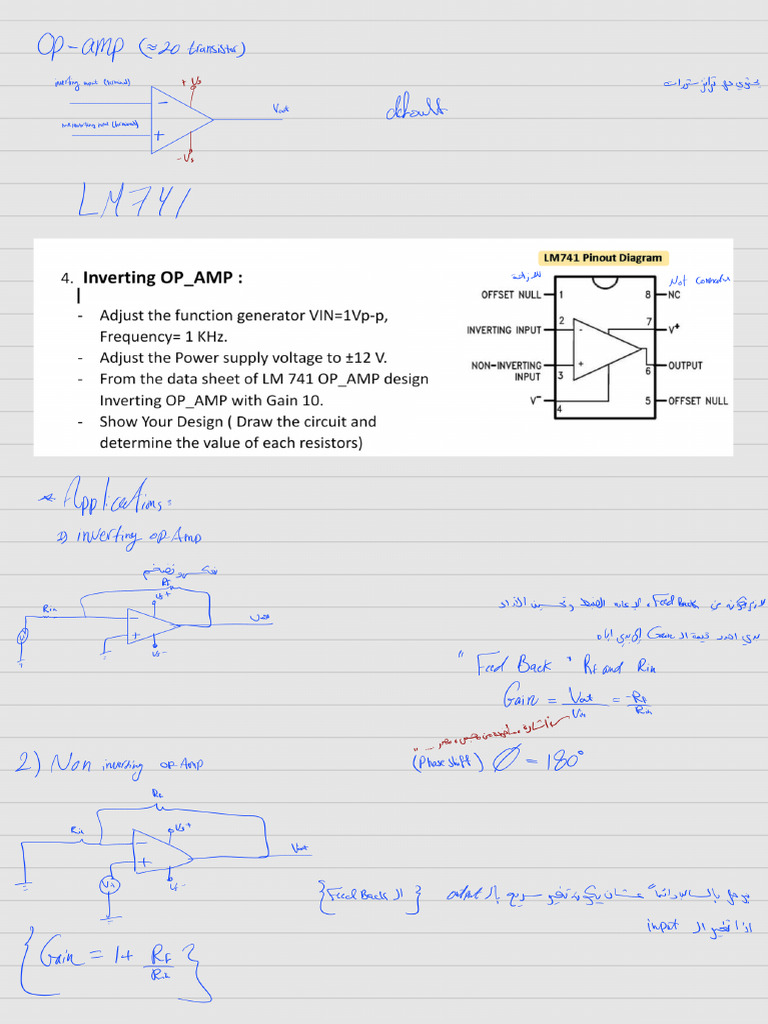 Op-amp (≈20 transistor)
inverting input (terminal)
+Vs
-
Vout
non inverting input (terminal)
+
-Vs
default
LM741
4. Inverting OP_AMP :
- Adjust the function generator VIN=1Vp-p,
Frequency= 1 KHz.
- Adjust the Power supply voltage to ±12 V.
- From the data sheet of LM 741 OP_AMP design
Inverting OP_AMP with Gain 10.
- Show Your Design ( Draw the circuit and
determine the value of each resistors)
LM741 Pinout Diagram
Not Connected
OFFSET NULL 1
8 NC
INVERTING INPUT 2
7 V+
NON-INVERTING
INPUT 3
6 OUTPUT
V- 4
5 OFFSET NULL
* Applications:
1) inverting op-Amp
RF
Vs+
Rin
-
+
Vout
Vs-
من FeedBack
قيمة ال Gain
"Feed Back" RF and Rin
Gain = Vout/Vin = -RF/Rin
(Phase shift) Ø = 180°
2) Non inverting op-Amp
RF
Rin
Vs+
-
+
Vout
Vin
Vs-
{ال FeedBack} بالسالب دائماً عشان يكون في تغير سريع بال output
اذا تغير ال input
{Gain = 1 + RF/Rin}